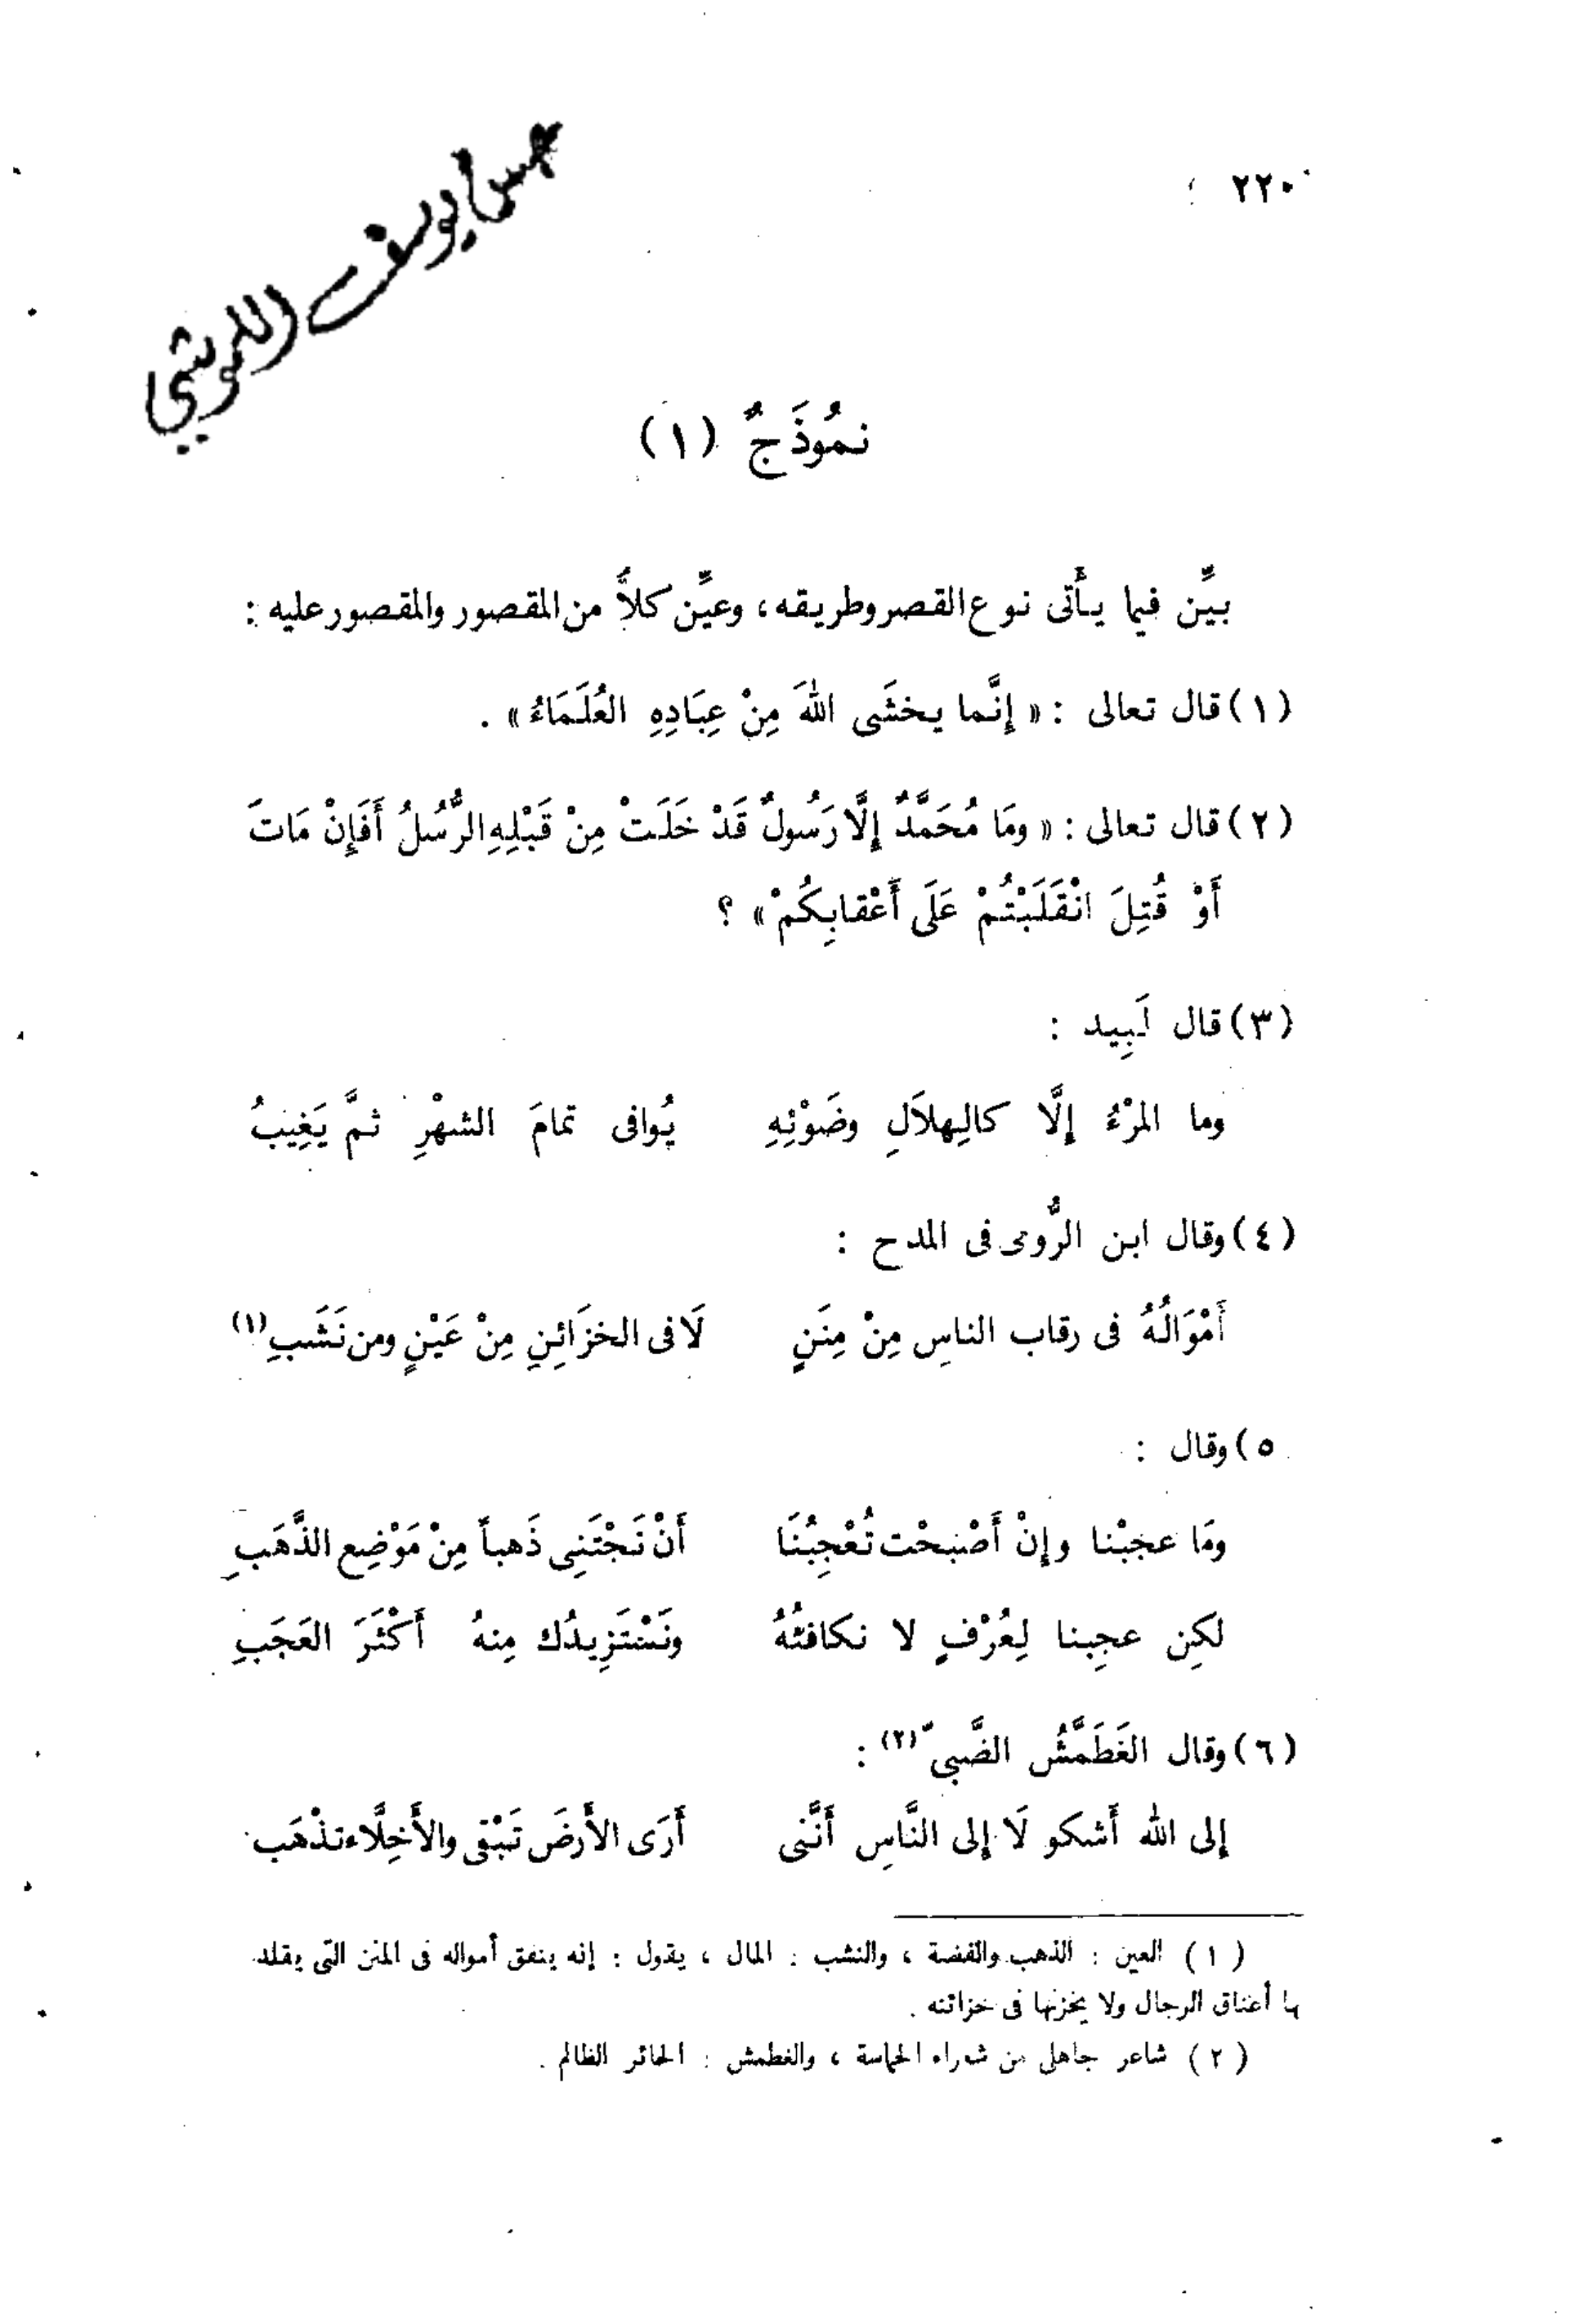 ٢٢٠
يوسف
نمُوذَجٌ (١)
بيِّن فيما يأتى نوع القصر وطريقه، وعيِّن كلاًّ من المقصور والمقصور عليه :
(١) قال تعالى : « إِنَّما يخشَى اللهَ مِنْ عِبَادِهِ العُلَمَاءُ» .
(٢) قال تعالى : « ومَا مُحَمَّدٌ إِلَّا رَسُولٌ قَدْ خَلَتْ مِنْ قَبْلِهِ الرُّسُلُ أَفَإِنْ مَاتَ
أَوْ قُتِلَ انْقَلَبْتُمْ عَلَى أَعْقابِكُمْ» ؟
(٣) قال لَبِيد :
وما المرْءُ إِلَّا كالهِلاَلِ وضَوْئِهِ يُوافى تمامَ الشهْرِ ثمَّ يَغِيبُ
(٤) وقال ابن الرُّومى فى المدح :
أَمْوَالُهُ فى رقاب الناسِ مِنْ مِنَنٍ لَا فى الخزَائِنِ مِنْ عَيْنٍ ومن نَشَبِ (١)
٥) وقال :
ومَا عجبْنا وإنْ أَصْبحْت تُعْجِبُنَا أَنْ نَجْتَنِى ذَهباً مِنْ مَوْضِع الذَّهَبِ
لكِن عجِبنا لِعُرْفٍ لا نكافئُهُ ونَسْتَزِيدُك مِنهُ أَكْثَرَ العَجَبِ
(٦) وقال الغَطَمَّشُ الضَّبىّ (٢) :
إلى الله أَشكو لَا إلى النَّاسِ أَنَّنى أَرَى الأَرضَ تَبْقى والأَخِلَّاء تذْهَب
(١) العين : الذهب والفضة ، والنشب : المال ، يقول : إنه ينفق أمواله فى المنن التى يقلد
بها أعناق الرجال ولا يخزنها فى خزائنه .
(٢) شاعر جاهلى من شعراء الحماسة ، والغطمش : الجائر الظالم .